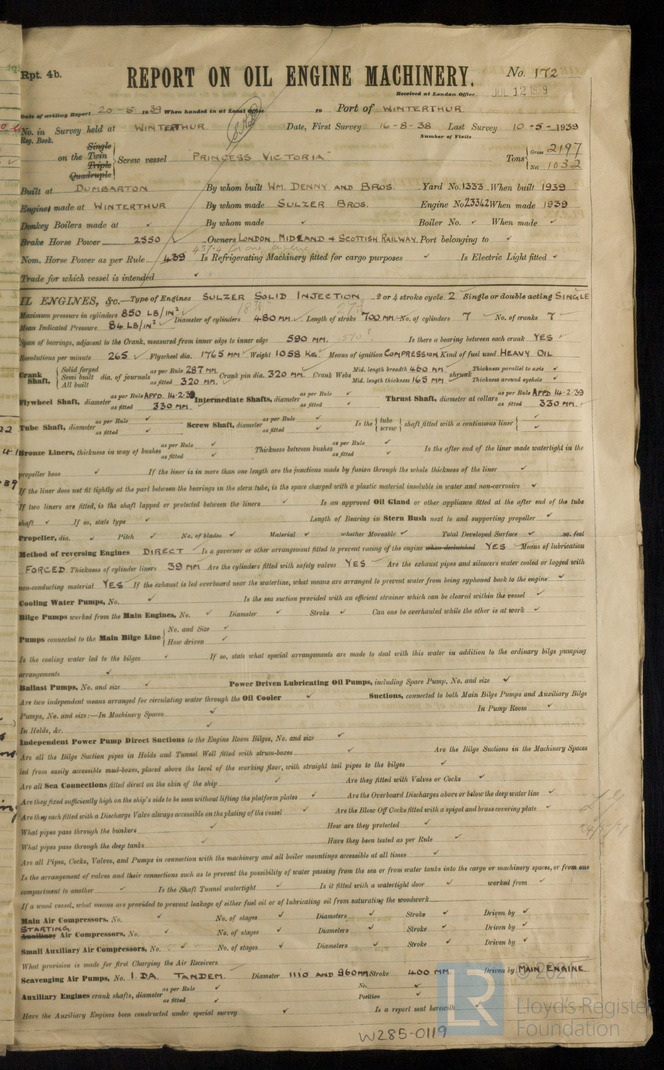 Rpt. 4b. REPORT ON OIL ENGINE MACHINERY. No. 172
Received at London Office JUL 12 1939
Date of writing Report 20-5-1939 When handed in at Local Office to Port of WINTERTHUR
No. in Survey held at WINTERTHUR Date, First Survey 16-8-38 Last Survey 10-5-1939
Reg. Book. Number of Visits
Single
on the Twin Screw vessel PRINCESS VICTORIA Tons Gross 2197
Triple Net 1032
Quadruple
Built at DUMBARTON By whom built WM. DENNY AND BROS. Yard No. 1333 When built 1939
Engines made at WINTERTHUR By whom made SULZER BROS. Engine No. 23342 When made 1939
Donkey Boilers made at By whom made Boiler No. When made
Brake Horse Power 2550 Owners LONDON, MIDLAND & SCOTTISH RAILWAY. Port belonging to
Nom. Horse Power as per Rule 439 Is Refrigerating Machinery fitted for cargo purposes Is Electric Light fitted
Trade for which vessel is intended
IL ENGINES, &c.—Type of Engines SULZER SOLID INJECTION 2 or 4 stroke cycle 2 Single or double acting SINGLE
Maximum pressure in cylinders 850 LB/IN² Diameter of cylinders 480 MM. Length of stroke 700 MM. No. of cylinders 7 No. of cranks 7
Mean Indicated Pressure 84 LB/IN²
Span of bearings, adjacent to the Crank, measured from inner edge to inner edge 590 MM. Is there a bearing between each crank YES
Revolutions per minute 265 Flywheel dia. 1765 MM Weight 1058 KG Means of ignition COMPRESSION Kind of fuel used HEAVY OIL
Crank Shaft, Solid forged Semi built All built dia. of journals as per Rule 287 MM. as fitted 320 MM. Crank pin dia. 320 MM. Crank Webs Mid. length breadth 460 MM Mid. length thickness 165 MM shrunk Thickness parallel to axis Thickness around eyehole
Flywheel Shaft, diameter as per Rule APPD. 14-2-39 as fitted 330 MM. Intermediate Shafts, diameter as per Rule as fitted Thrust Shaft, diameter at collars as per Rule APPD 14-2-39 as fitted 330 MM.
Tube Shaft, diameter as per Rule as fitted Screw Shaft, diameter as per Rule as fitted Is the tube screw shaft fitted with a continuous liner
Bronze Liners, thickness in way of bushes as per Rule as fitted Thickness between bushes as per Rule as fitted Is the after end of the liner made watertight in the
propeller boss If the liner is in more than one length are the junctions made by fusion through the whole thickness of the liner
If the liner does not fit tightly at the part between the bearings in the stern tube, is the space charged with a plastic material insoluble in water and non-corrosive
If two liners are fitted, is the shaft lapped or protected between the liners Is an approved Oil Gland or other appliance fitted at the after end of the tube
shaft If so, state type Length of Bearing in Stern Bush next to and supporting propeller
Propeller, dia. Pitch No. of blades Material whether Moveable Total Developed Surface sq. feet
Method of reversing Engines DIRECT Is a governor or other arrangement fitted to prevent racing of the engine when declutched YES Means of lubrication
FORCED Thickness of cylinder liners 39 MM Are the cylinders fitted with safety valves YES Are the exhaust pipes and silencers water cooled or lagged with
non-conducting material YES If the exhaust is led overboard near the waterline, what means are arranged to prevent water from being syphoned back to the engine
Cooling Water Pumps, No. Is the sea suction provided with an efficient strainer which can be cleared within the vessel
Bilge Pumps worked from the Main Engines, No. Diameter Stroke Can one be overhauled while the other is at work
Pumps connected to the Main Bilge Line No. and Size How driven
Is the cooling water led to the bilges If so, state what special arrangements are made to deal with this water in addition to the ordinary bilge pumping
arrangements
Ballast Pumps, No. and size Power Driven Lubricating Oil Pumps, including Spare Pump, No. and size
Are two independent means arranged for circulating water through the Oil Cooler Suctions, connected to both Main Bilge Pumps and Auxiliary Bilge
Pumps, No. and size:—In Machinery Spaces In Pump Room
In Holds, &c.
Independent Power Pump Direct Suctions to the Engine Room Bilges, No. and size
Are all the Bilge Suction pipes in Holds and Tunnel Well fitted with strum-boxes Are the Bilge Suctions in the Machinery Spaces
led from easily accessible mud-boxes, placed above the level of the working floor, with straight tail pipes to the bilges
Are all Sea Connections fitted direct on the skin of the ship Are they fitted with Valves or Cocks
Are they fixed sufficiently high on the ship's side to be seen without lifting the platform plates Are the Overboard Discharges above or below the deep water line
Are they each fitted with a Discharge Valve always accessible on the plating of the vessel Are the Blow Off Cocks fitted with a spigot and brass covering plate
What pipes pass through the bunkers How are they protected
What pipes pass through the deep tanks Have they been tested as per Rule
Are all Pipes, Cocks, Valves, and Pumps in connection with the machinery and all boiler mountings accessible at all times
Is the arrangement of valves and their connections such as to prevent the possibility of water passing from the sea or from water tanks into the cargo or machinery spaces, or from one
compartment to another Is the Shaft Tunnel watertight Is it fitted with a watertight door worked from
If a wood vessel, what means are provided to prevent leakage of either fuel oil or of lubricating oil from saturating the woodwork
Main Air Compressors, No. No. of stages Diameters Stroke Driven by
STARTING
Auxiliary Air Compressors, No. No. of stages Diameters Stroke Driven by
Small Auxiliary Air Compressors, No. No. of stages Diameters Stroke Driven by
What provision is made for first Charging the Air Receivers
Scavenging Air Pumps, No. 1. DA. TANDEM. Diameter 1110 AND 960 MM Stroke 400 MM Driven by MAIN ENGINE
Auxiliary Engines crank shafts, diameter as per Rule as fitted No. Position
Have the Auxiliary Engines been constructed under special survey Is a report sent herewith
W285-0119
© 2021
LR Lloyd's Register
Foundation